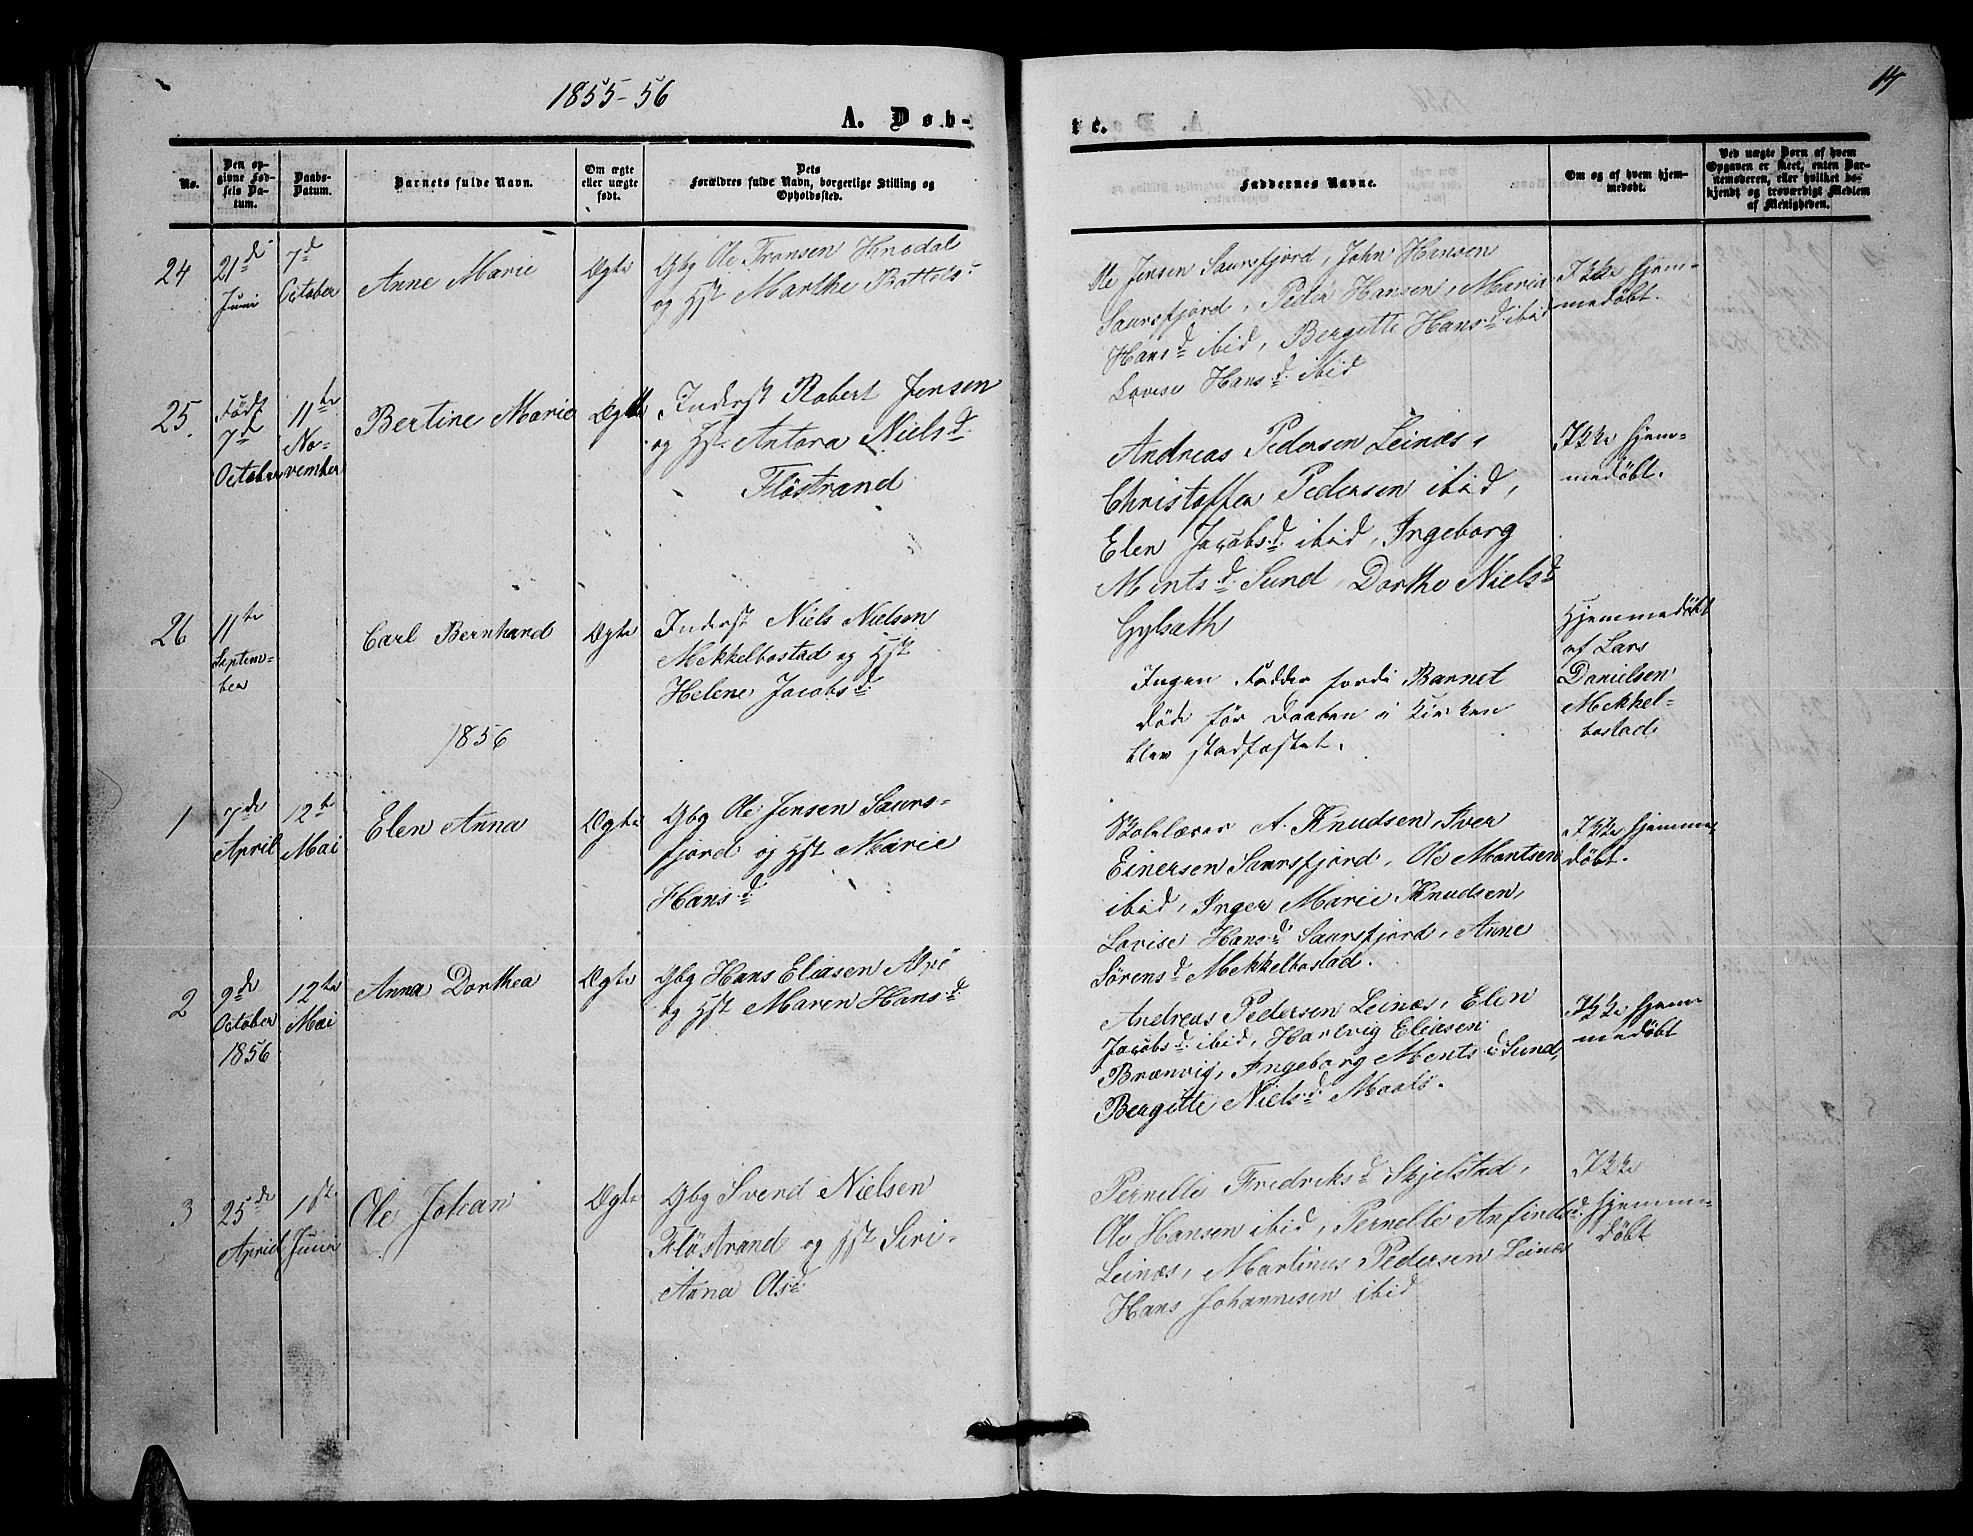 1855-56
14
A. Døb-
te.
No.
Den op-
givne Fød-
sels Da-
tum.
Daabs-
Datum.
Barnets fulde Navn.
Om ægte
eller uægte
født.
Dets
Forældres fulde Navn, borgerlige Stilling og
Opholdssted.
Faddernes Navne.
Om og af hvem hjem-
medøbt.
Ved uægte Børn af hvem
Opgaven er skeet, enten Bar-
nemoderen, eller hvilket be-
kjendt og troværdigt Medlem
af Menigheden.
24
21de
Juni
7d
October
Anne Marie
Ægte
Gbg Ole Fransen
og Hst Marthe
Ole Jensen Saursfjord, John Hansen
Saursfjord, Peder Hansen, Marie
Hansd ibid, Bergitte Hansd ibid
Lovise Hansd ibid
Ikke hjem-
medøbt.
25.
Født
7d
October
11te
No-
vember
Bertine Marie
Ægte
Inderst Robert Jensen
og Hst. Antora Nielsd
Flöstrand
Andreas Pedersen Leinæs,
Christoffer Pedersen ibid,
Elen Jacobsd. ibid, Ingeborg
Mentsd. Sund, Dorthe Nielsd
Ikke hjem-
medøbt.
26
11te
Septem-
ber
Carl Bernhard
Ægte
Inderst Niels Nielsen
Mekkelbostad og Hst
Helene Jacobsd.
Ingen Fadder fordi Barnet
døde før Daaben i Kirken
blev stadfæstet.
Hjemmedøbt
af Lars
Danielsen
Mekkel-
bostad.
1856
1
7de
April
12te
Mai
Elen Anna
Ægte
Gbg Ole Jensen Saurs-
fjord og Hst Marie
Hansd
Skolelærer A. Knudsen, Iver
Einersen Saursfjord, Ole Mantsen
ibid, Inger Marie Knudsen,
Lovise Hansd Saursfjord, Anne
Sörensd Mekkelbostad.
Ikke hjemme-
døbt.
2
9de
October
1856
12te
Mai
Anna Dorthea
Ægte
Gbg Hans Eliasen
og Hst Maren Hansd
Andreas Pedersen Leinæs, Elen
Jacobsd. ibid, Hartvig Eliasen
Brænvig, Ingeborg Mentsd Sund,
Bergitte Nielsd Maalö.
Ikke hjem-
medøbt
3
25de
April
1ste
Juni
Ole Johan
Ægte
Gbg Svend Nielsen
Flöstrand og Hst Siri-
Anna Olsd
Pernelle Fredriksd Skjelstad,
Ole Hansen ibid, Pernelle Anfindsd.
Leinæs, Martinus Pedersen Leinæs
Hans Johannesen ibid
Ikke
hjemme-
døbt